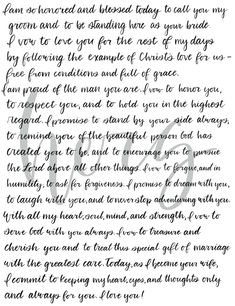 I am so honored and blessed today to call you my
groom and to be standing here as your bride.
I vow to love you for the rest of my days
by following the example of Christ's love for us-
free from conditions and full of grace.
I am proud of the man you are. I vow to honor you,
to respect you, and to hold you in the highest
regard. I promise to stand by your side always,
to remind you of the beautiful person God has
created you to be, and to encourage you to pursue
the Lord above all other things. I vow to forgive, and in
humility, to ask for forgiveness. I promise to dream with you,
to laugh with you, and to never stop adventuring with you.
With all my heart, soul, mind, and strength, I vow to
serve God with you always. I vow to treasure and
cherish you and to treat this special gift of marriage
with the greatest care. Today, as I become your wife,
I commit to keeping my heart, eyes, and thoughts only
and always for you. I love you!